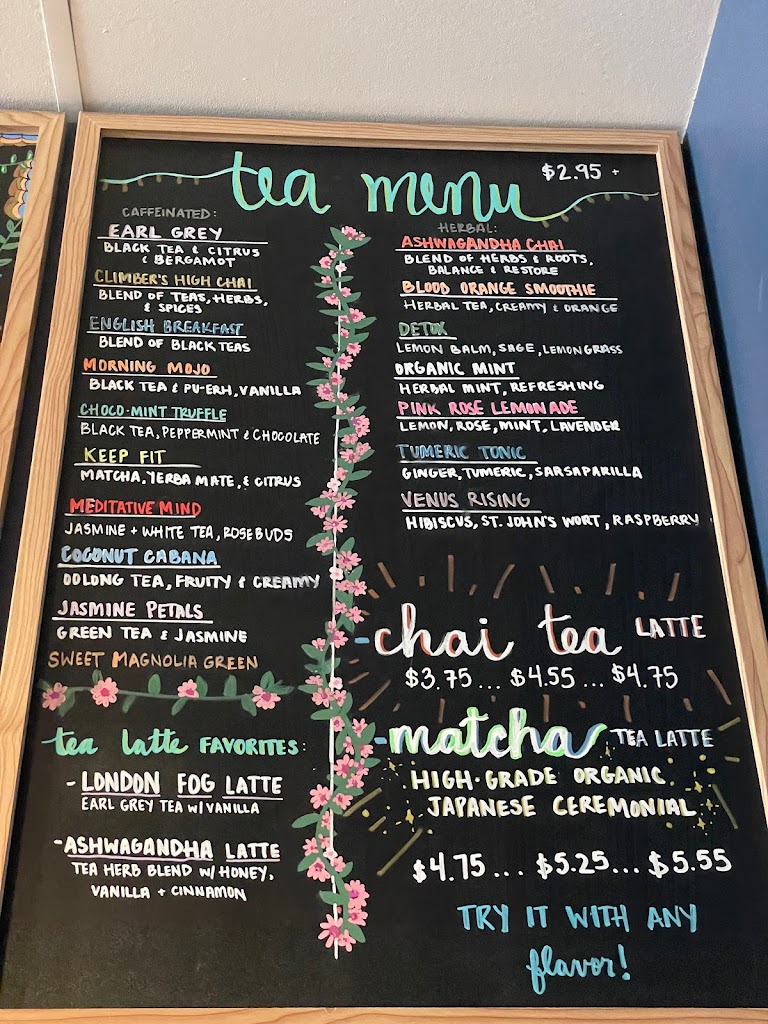 tea menu
$2.95 +
CAFFEINATED:
EARL GREY
BLACK TEA & CITRUS
& BERGAMOT
CLIMBER'S HIGH CHAI
BLEND OF TEAS, HERBS,
& SPICES
ENGLISH BREAKFAST
BLEND OF BLACK TEAS
MORNING MOJO
BLACK TEA & PU-ERH, VANILLA
CHOCO-MINT TRUFFLE
BLACK TEA, PEPPERMINT & CHOCOLATE
KEEP FIT
MATCHA, YERBA MATE, & CITRUS
MEDITATIVE MIND
JASMINE + WHITE TEA, ROSEBUDS
COCONUT CABANA
OOLONG TEA, FRUITY & CREAMY
JASMINE PETALS
GREEN TEA & JASMINE
SWEET MAGNOLIA GREEN
tea latte FAVORITES:
- LONDON FOG LATTE
EARL GREY TEA W/VANILLA
- ASHWAGANDHA LATTE
TEA HERB BLEND W/ HONEY,
VANILLA + CINNAMON
HERBAL:
ASHWAGANDHA CHAI
BLEND OF HERBS & ROOTS,
BALANCE & RESTORE
BLOOD ORANGE SMOOTHIE
HERBAL TEA, CREAMY & ORANGE
DETOX
LEMON BALM, SAGE, LEMONGRASS
ORGANIC MINT
HERBAL MINT, REFRESHING
PINK ROSE LEMONADE
LEMON, ROSE, MINT, LAVENDER
TUMERIC TONIC
GINGER, TUMERIC, SARSAPARILLA
VENUS RISING
HIBISCUS, ST. JOHN'S WORT, RASPBERRY
- chai tea LATTE
$3.75 ... $4.55 ... $4.75
- matcha TEA LATTE
HIGH-GRADE ORGANIC
JAPANESE CEREMONIAL
$4.75 ... $5.25 ... $5.55
TRY IT WITH ANY
flavor!